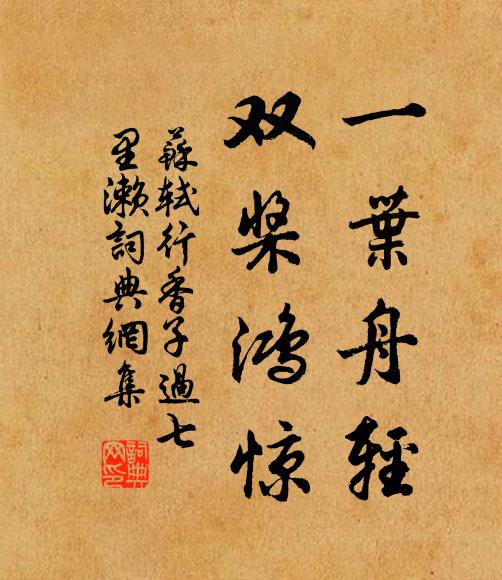 一葉舟輕
双桨鸿惊
蘇轼行香子過七
里濑詞典網集
詞典
网印